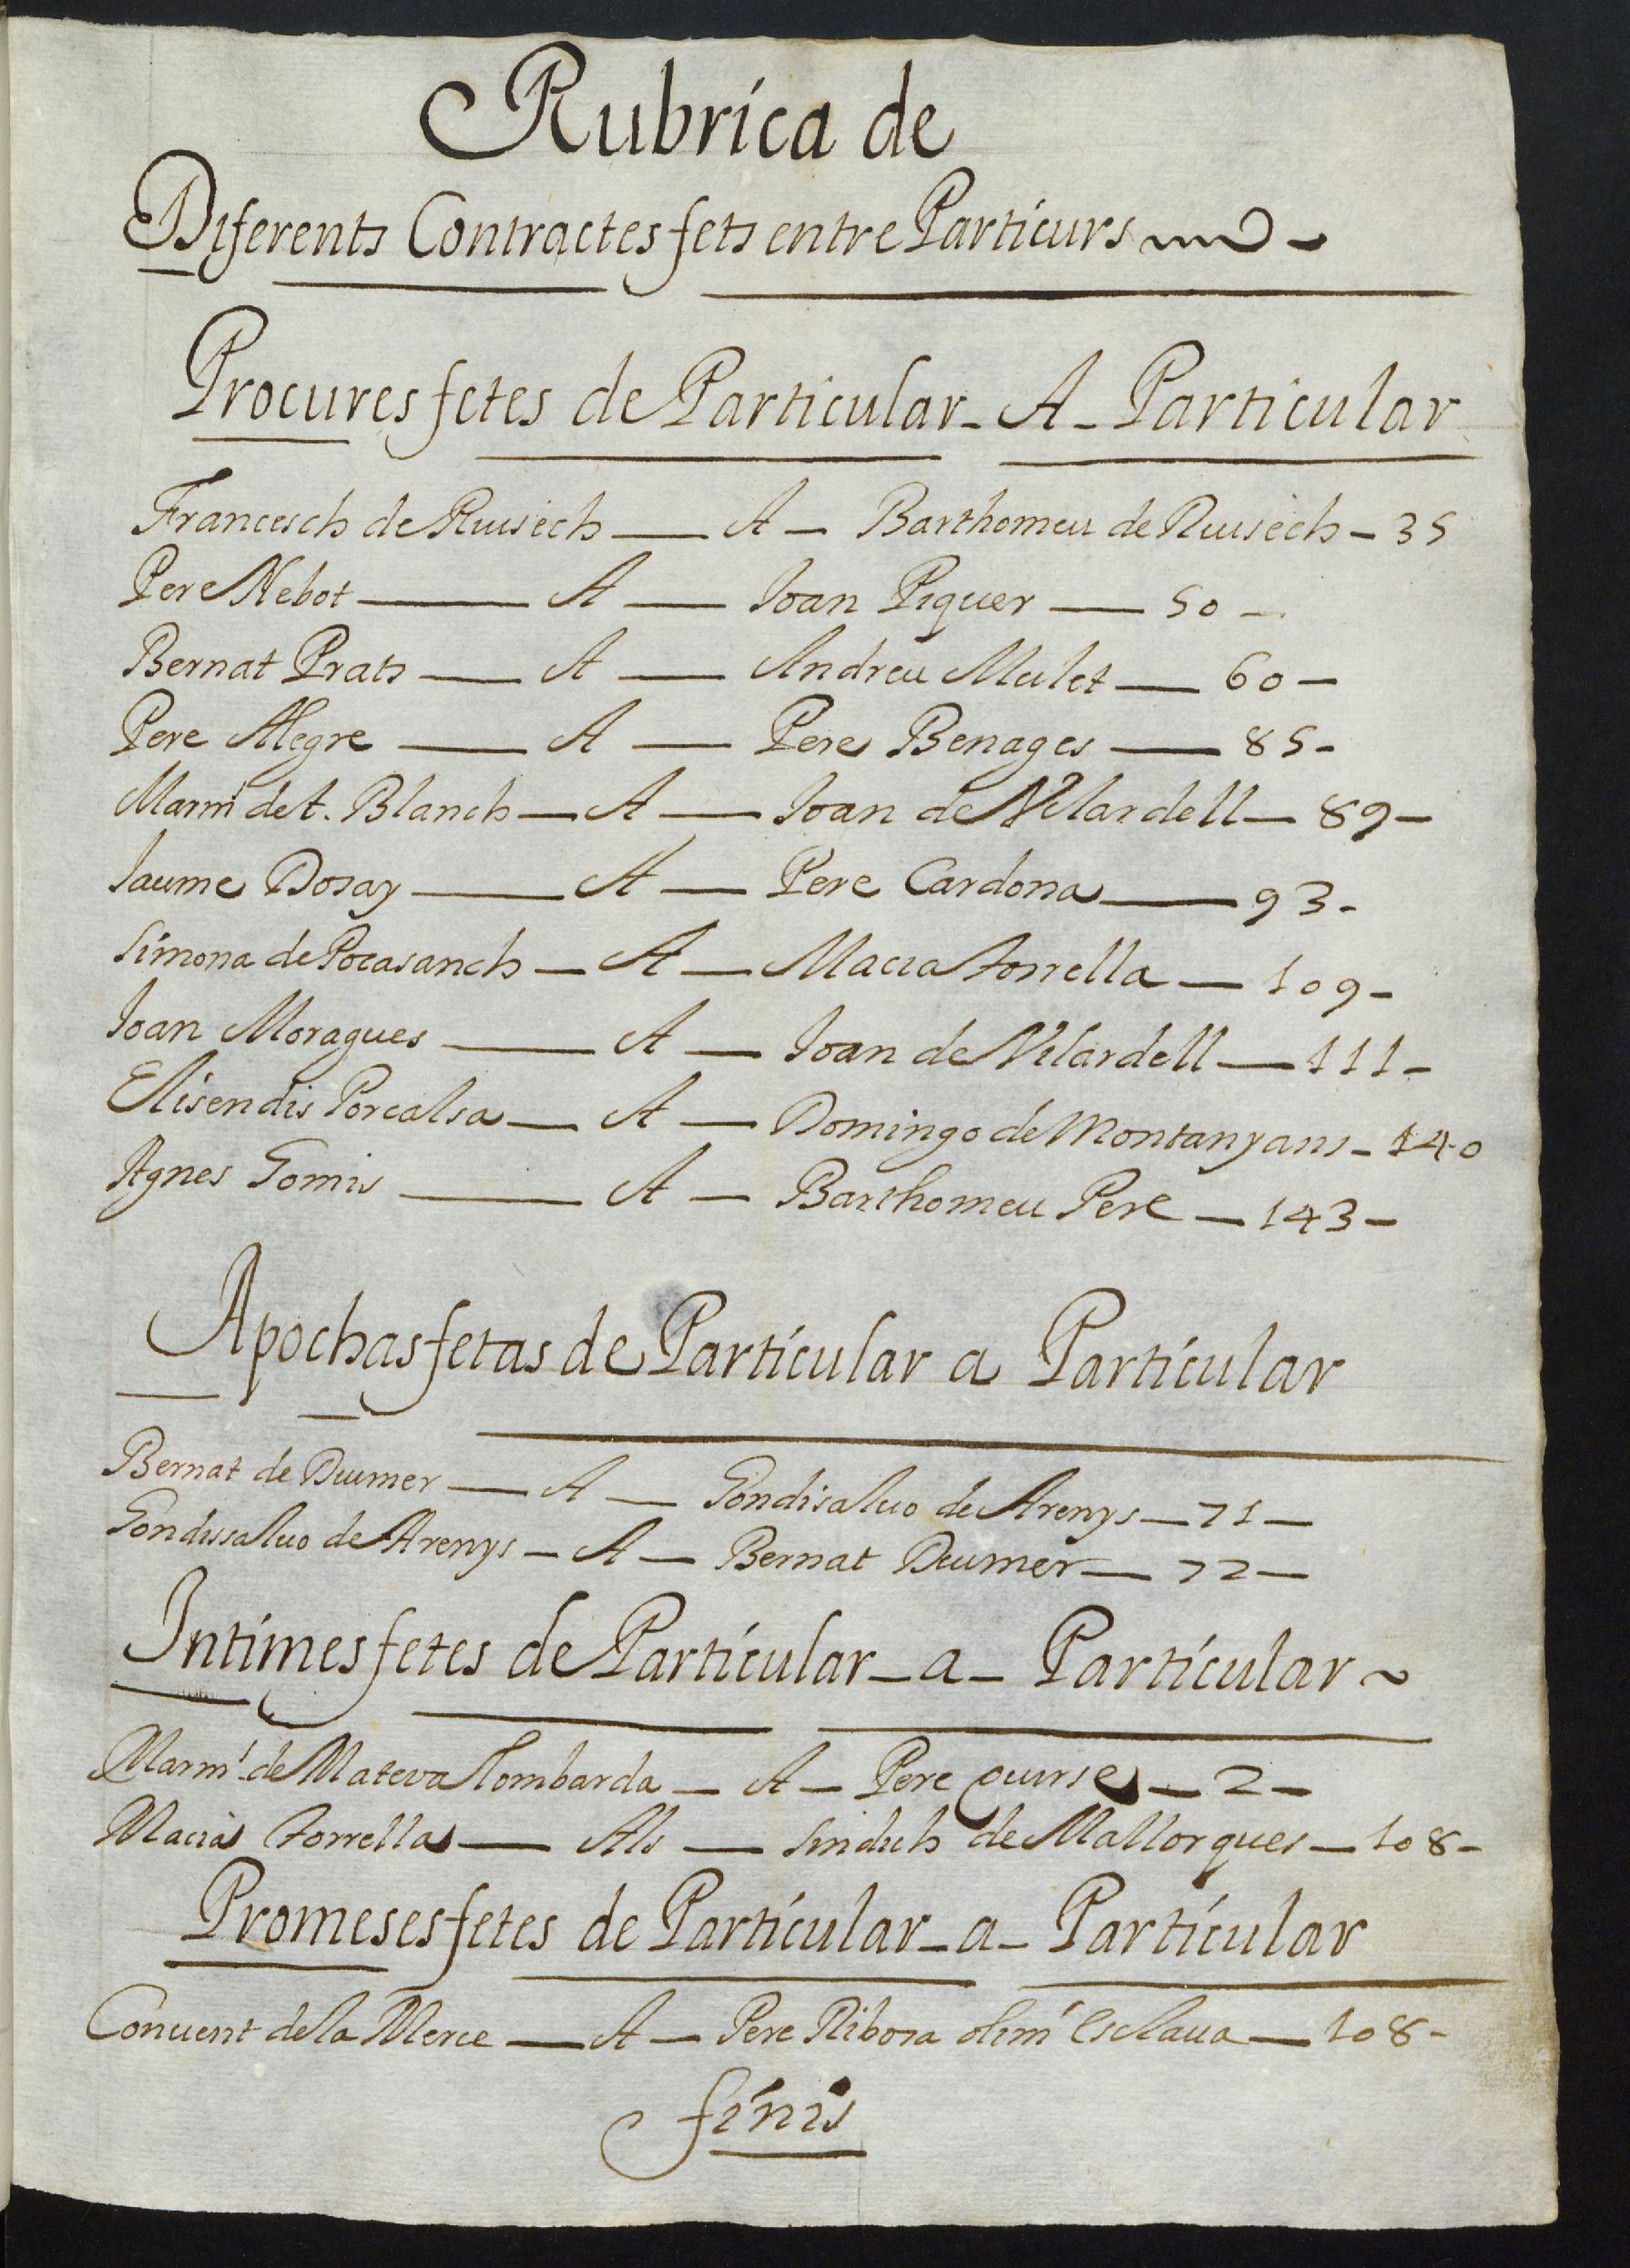 Rubrica de
Diferents Contractes fets entre Particurs
Procures fetes de Particular - A - Particular
Francesch de Riusech — A — Barthomeu de Riusech - 35
Pere Nebot — A — Joan Piquer — 50 -
Bernat Prats — A — Andreu Mulet — 60 -
Pere Alegre — A — Pere Benages — 85 -
Marm de t. Blanch — A — Joan de Vilardell — 89 -
Jaume Dosay — A — Pere Cardona — 93 -
Simona de Pocasanch — A — Macia Torrella — 109 -
Joan Moragues — A — Joan de Vilardell — 111 -
Elisendis Porcalsa — A — Domingo de Montanyans - 140
Agnes Gomis — A — Barthomeu Pere — 143 -
Apochas fetas de Particular a Particular
Bernat de Diumer — A — Gondisaluo de Arenys — 71 —
Gondissaluo de Arenys - A — Bernat Diumer — 72 —
Intimes fetes de Particular - a - Particular ~
Marm de Mateva Lombarda — A — Pere — 2 —
Macia Torrella — Als — Sindichs de Mallorques — 108 -
Promeses fetes de Particular - a - Particular
Conuent de la Merce — A — Pere Ribora olim Esclaua — 108 -
finis